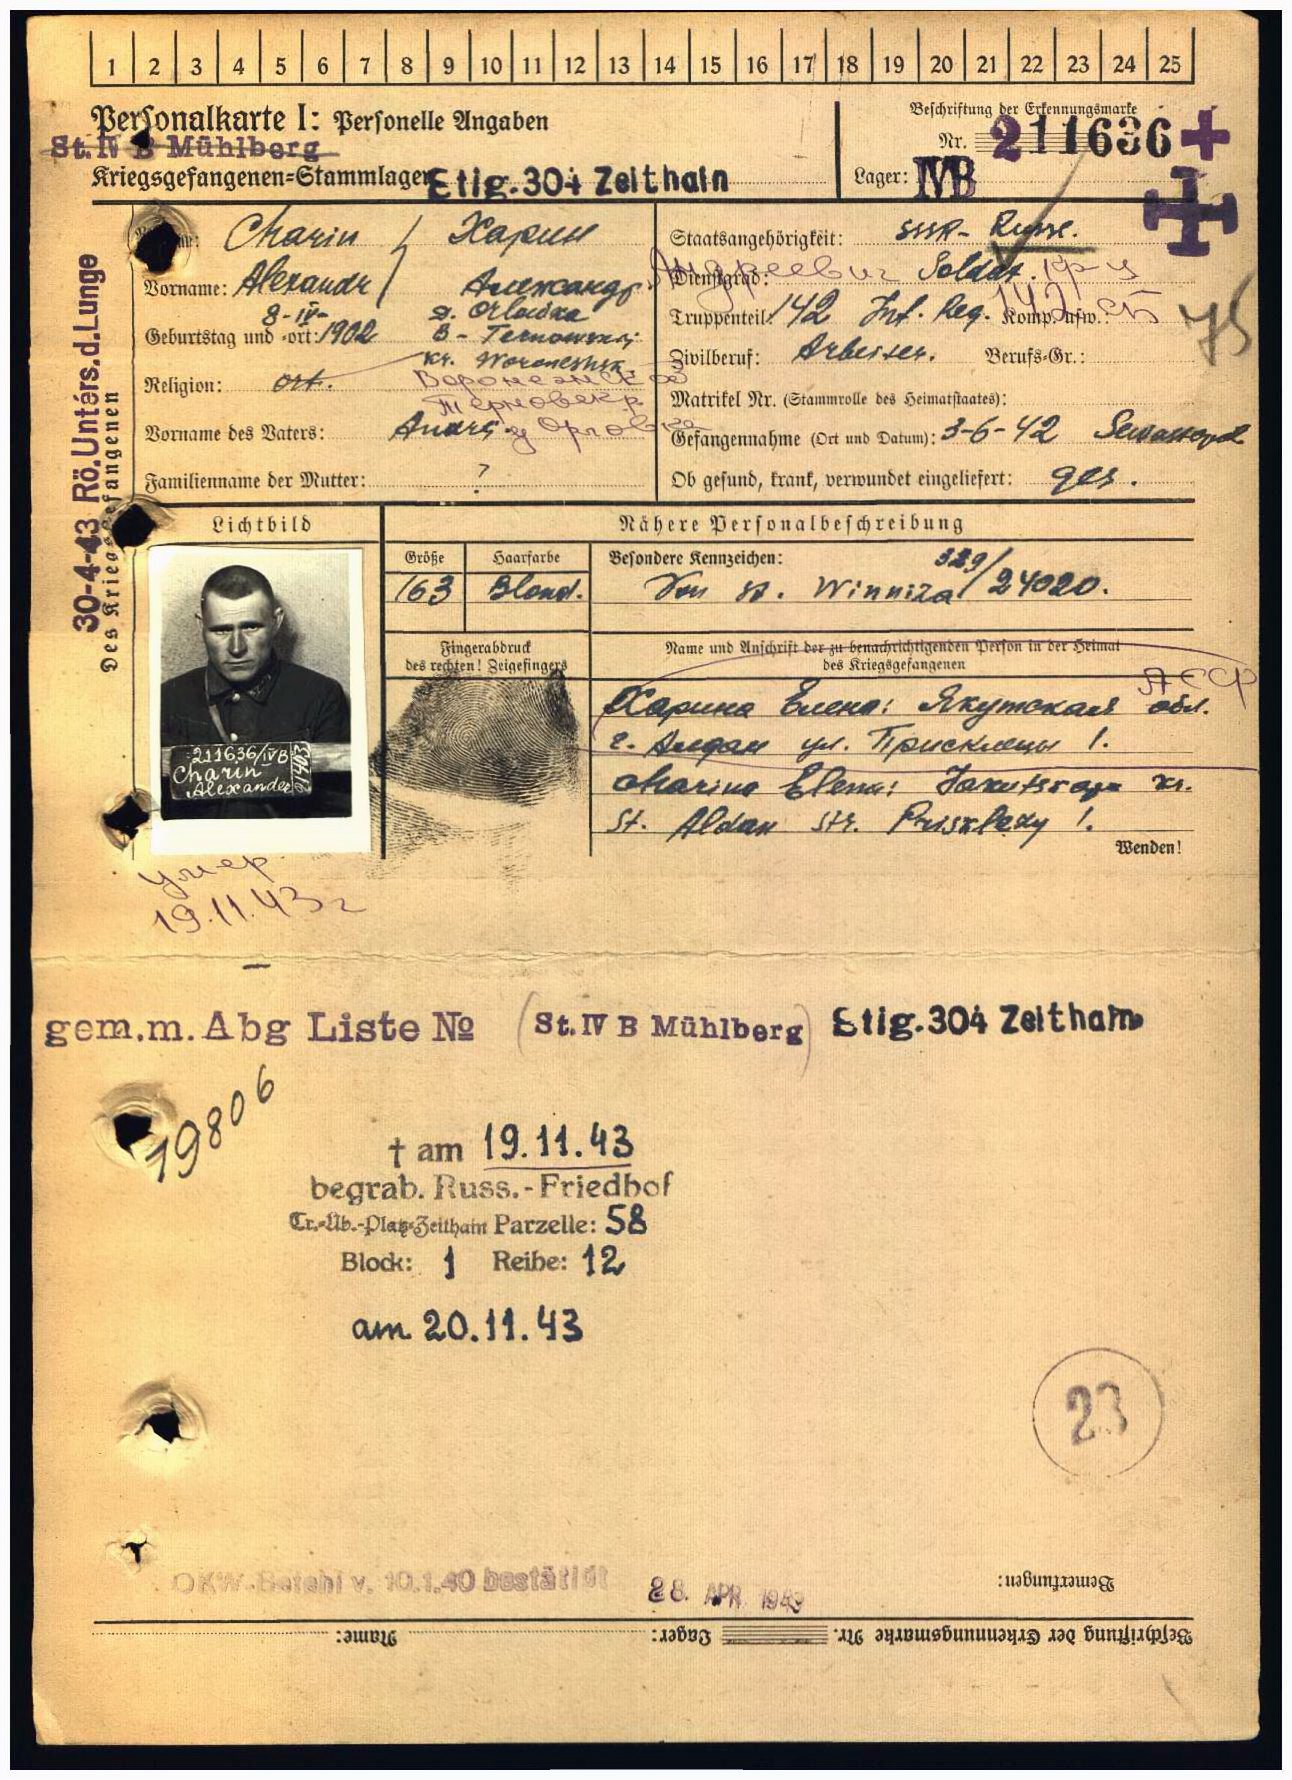 1 2 3 4 5 6 7 8 9 10 11 12 13 14 15 16 17 18 19 20 21 22 23 24 25
Personalkarte I: Personelle Angaben
St. IV B Mühlberg
Kriegsgefangenen-Stammlager Stlg. 304 Zeithain
Beschriftung der Erkennungsmarke
Nr. 211636
Lager: IVB
30-4-43 Rö.Unters.d.Lunge
Des Kriegsgefangenen
Charin Харин
Vorname: Alexandr Александр
Андреевич
Geburtstag und -ort: 8-IV-1902 d. Orlowka
B-Ternowskj
Kr. Woroneshsk.
Religion: ort.
Воронежской
Терновск р
Vorname des Vaters: Andrej
Familienname der Mutter: ?
Staatsangehörigkeit: SSSR- Russe.
Dienstgrad: Soldat. кр-ц
Truppenteil: 142 Inf. Reg. Komp. usw.: 142 сб
Zivilberuf: Arbeiter. Berufs-Gr.:
75
Matrikel Nr. (Stammrolle des Heimatstaates):
Gefangennahme (Ort und Datum): 3-6-42 Sewastopol
Ob gesund, krank, verwundet eingeliefert: ges.
Lichtbild
Nähere Personalbeschreibung
Größe Haarfarbe
163 Blond.
Besondere Kennzeichen: 329/24020.
Von St. Winniza
Fingerabdruck
des rechten! Zeigefingers
Name und Anschrift der zu benachrichtigenden Person in der Heimat
des Kriegsgefangenen
АССР
Харина Елена: Якутская обл.
г. Алдан ул. Присклецы 1.
Charina Elena: Jakutskaja
St. Aldan Str. Prisklezy 1.
Wenden!
211636/IVB
Charin
Alexander
21403
умер
19.11.43 г
gem.m. Abg Liste No (St. IV B Mühlberg) Stlg. 304 Zeithain
19806
† am 19.11.43
begrab. Russ.-Friedhof
Tr.-Üb.-Platz-Zeithain Parzelle: 58
Block: 1 Reihe: 12
am 20.11.43
23
OKW-Befehl v. 10.1.40 bestätigt
28. APR. 1943
Bemerkungen:
Beschriftung der Erkennungsmarke Nr. Lager: Name: